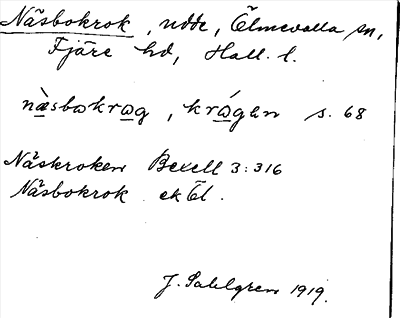 Näsbokrok, udde, Ölmevalla sn,
Fjäre hd, Hall. l.
næ̀sbωkrωg, krώgen s. 68
Näskroken Bexell 3:316
Näsbokrok ek Öl.
J. Sahlgren 1919.